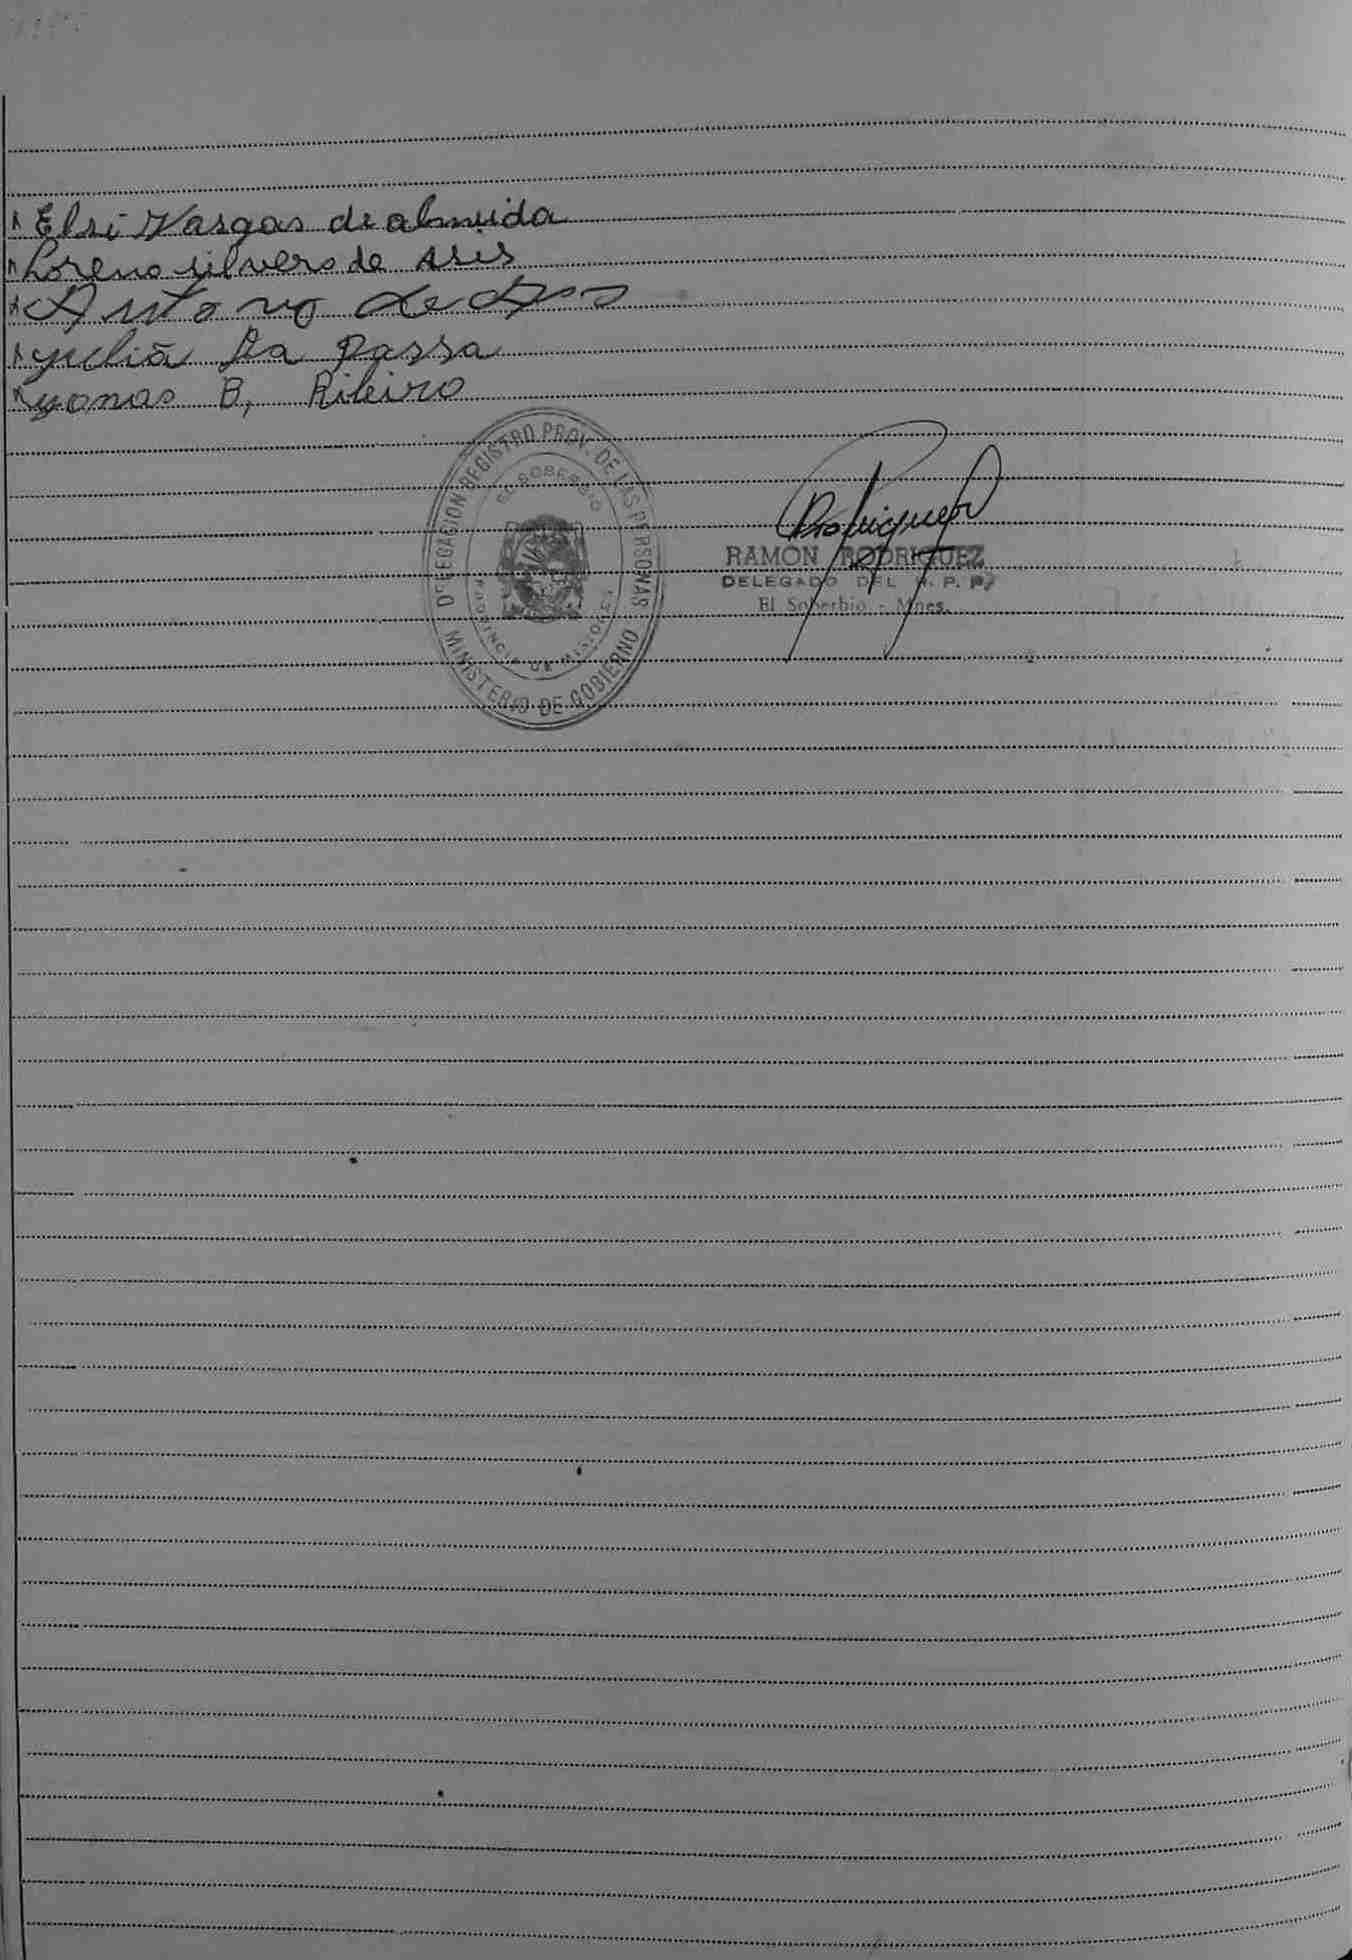 x Elsi Vargas de almeida
x Loreno silvero de Asis
x Antonio de
x yuliã Da passa
x yonas B, Ribeiro
DELEGACION REGISTRO PROV. DE LAS PERSONAS
EL SOBERBIO
PROVINCIA DE MISIONES
MINISTERIO DE GOBIERNO
Rodriguez
RAMON RODRIGUEZ
DELEGADO DEL R. P. P.
El Soberbio - Mnes.